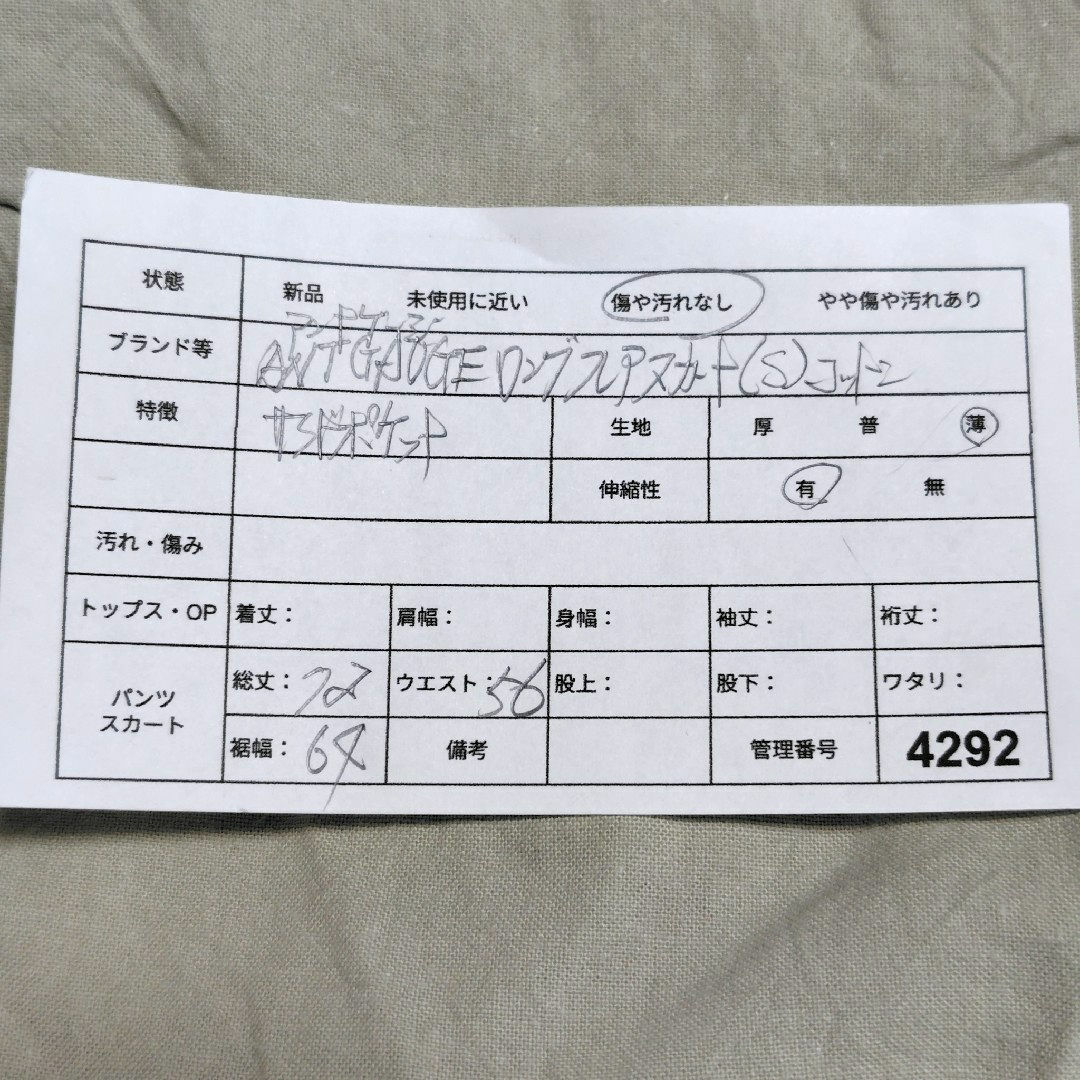 状態 新品 未使用に近い 傷や汚れなし やや傷や汚れあり
アンドゲージ
ブランド等 ANTGAUGE ロングフレアスカート(S)コットン
特徴 サイドポケット 生地 厚 普 薄
伸縮性 有 無
汚れ・傷み
トップス・OP 着丈: 肩幅: 身幅: 袖丈: 裄丈:
パンツ スカート 総丈: 72 ウエスト: 56 股上: 股下: ワタリ:
裾幅: 64 備考 管理番号 4292